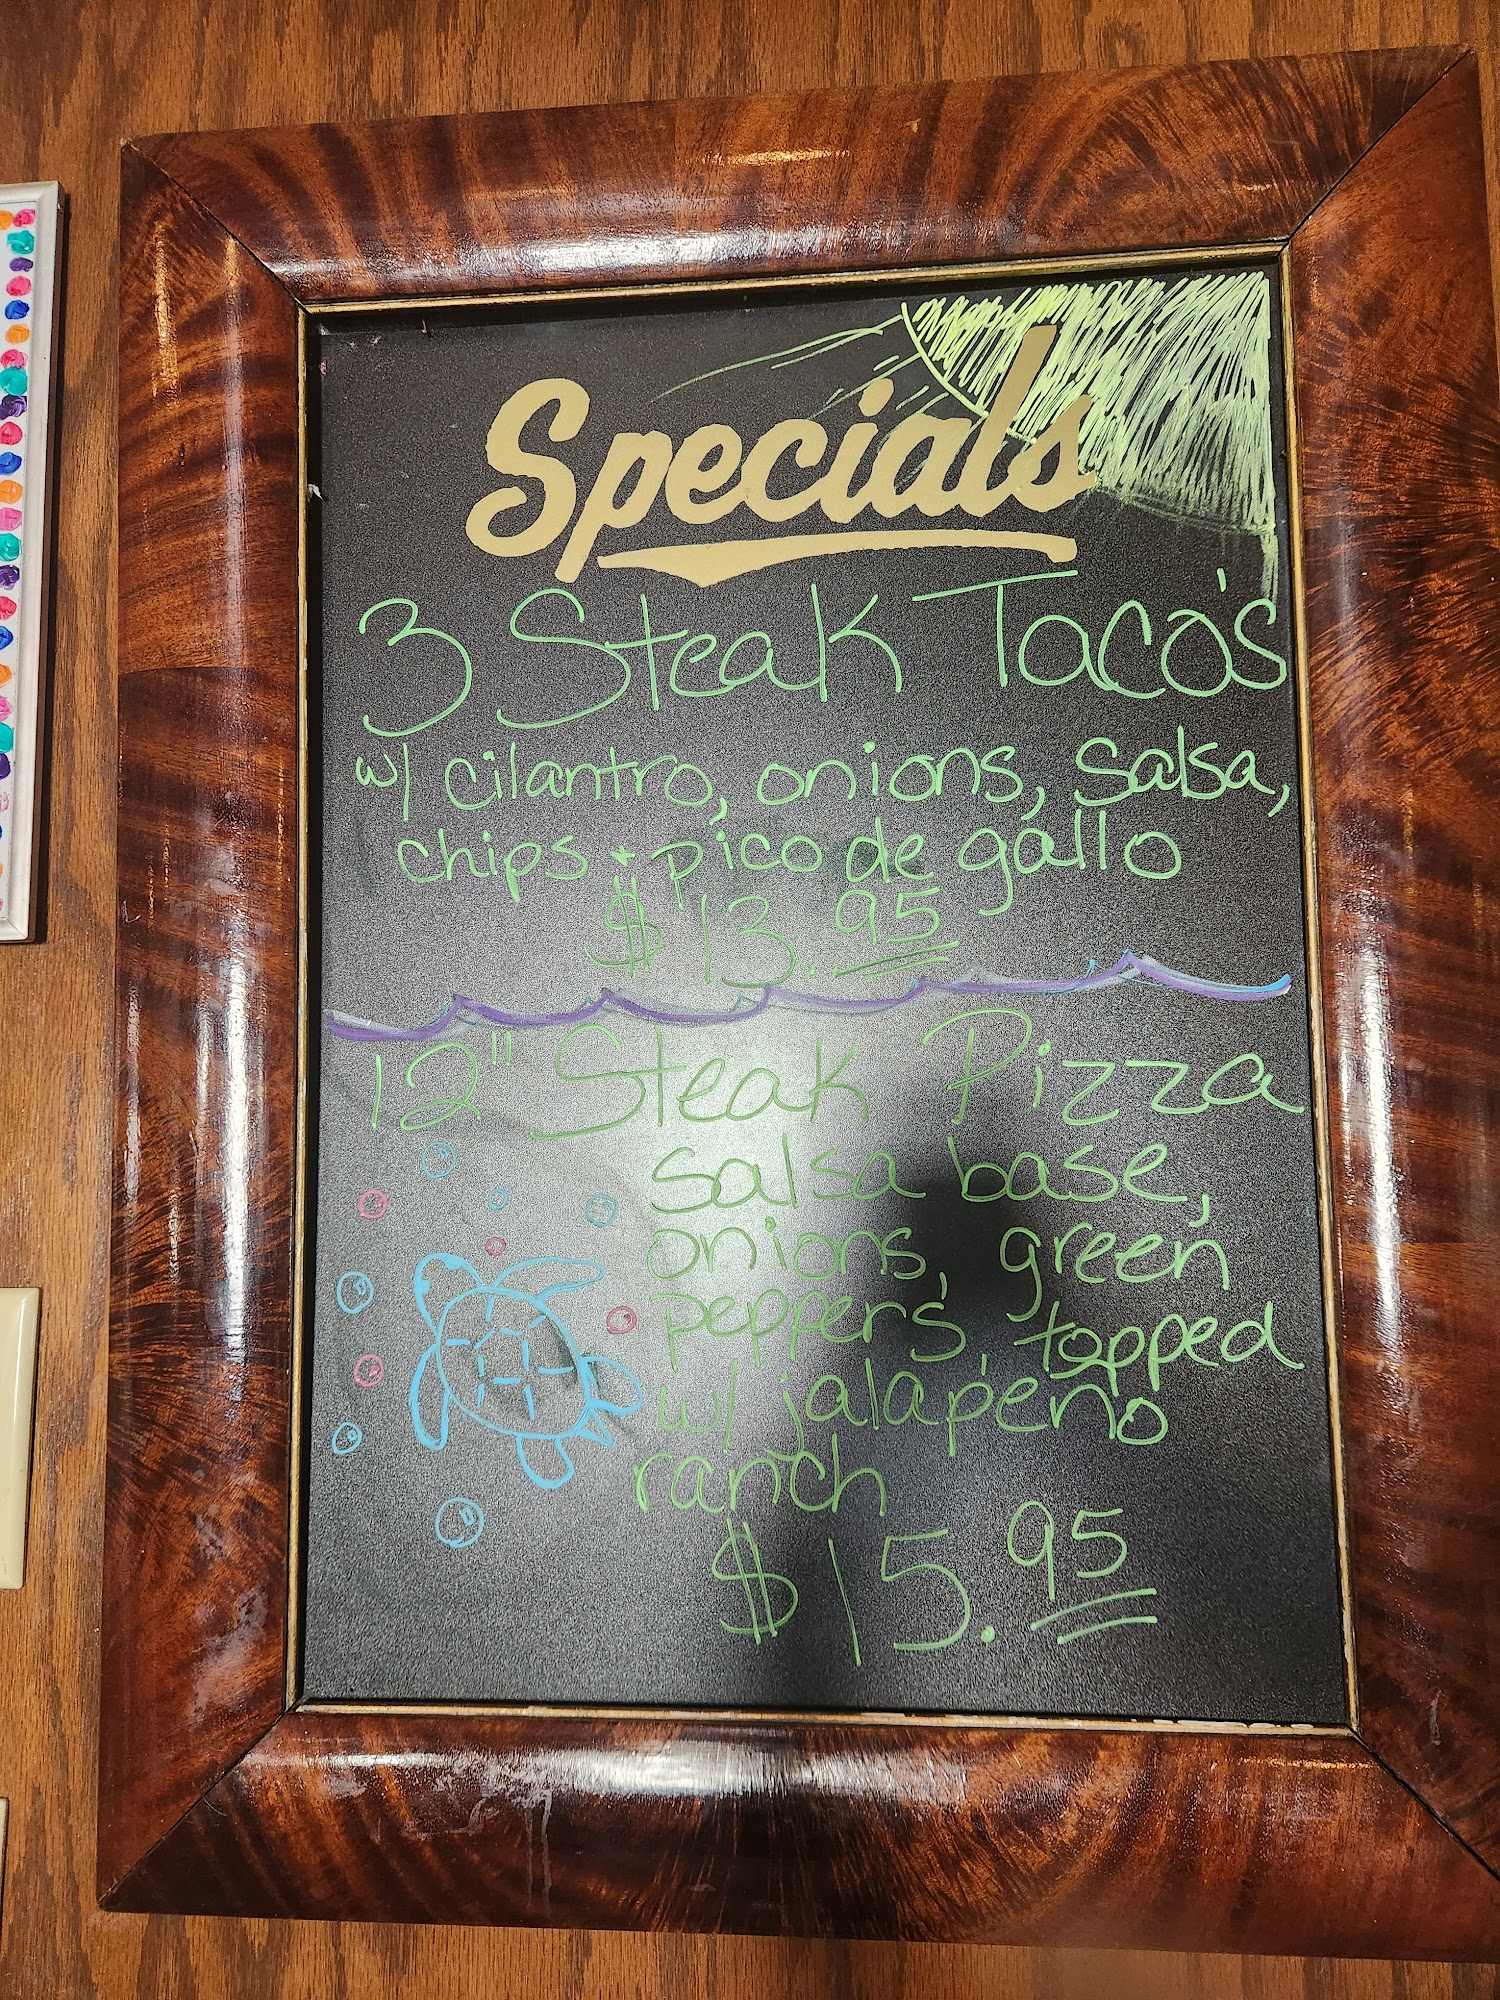 Specials
3 Steak Taco's
w/ cilantro, onions, salsa,
chips + pico de gallo
$13.95
12" Steak Pizza
salsa base,
onions, green
peppers, topped
w/ jalapeño
ranch
$15.95